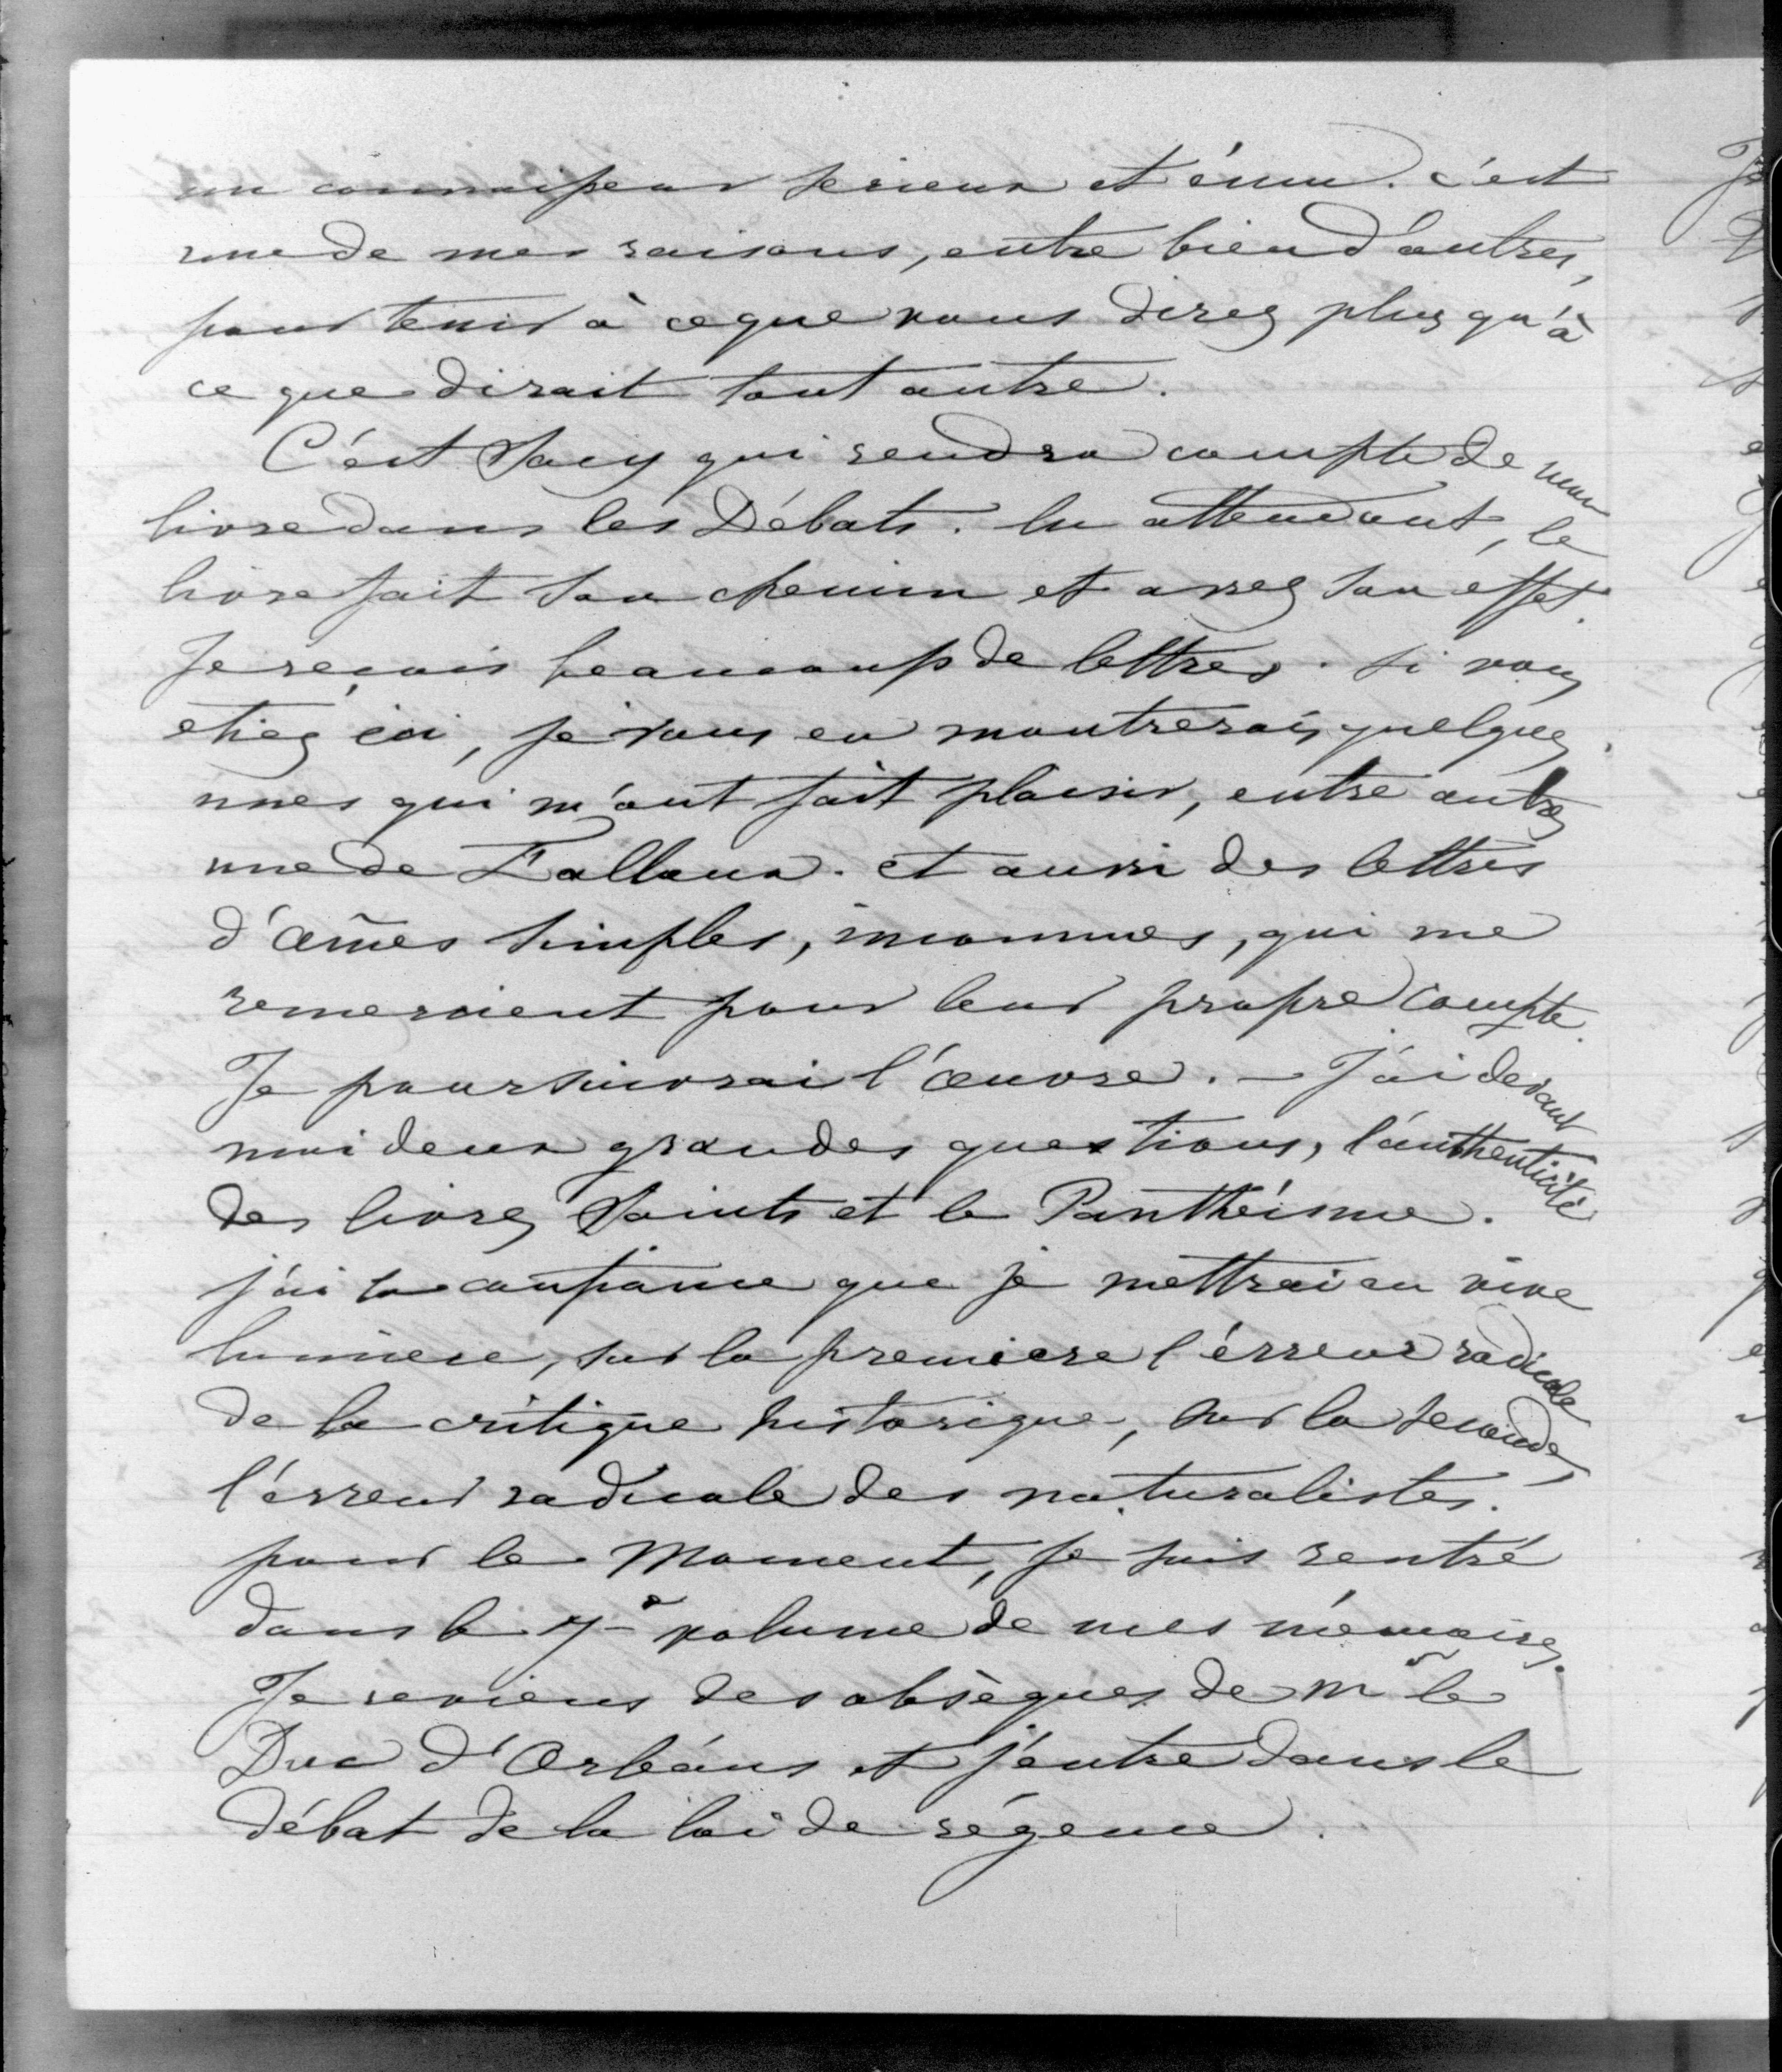 un connaisseur serieux et ému. c'est
une de mes raisons, entre bien d'autres,
pour tenir à ce que vous direz plus qu'à
ce que dirait tout autre.
C'est Sacy qui rendra compte de mon
livre dans les Débats. En attendant, le
livre fait son chemin et assez son effet.
Je reçois beaucoup de lettres. Si vous
etiez ici, je vous en montrerais quelques
unes qui m'ont fait plaisir, entre autres
une de Falloux. et aussi des lettres
d'âmes simples, inconnues, qui me
remercient pour leur propre compte.
Je poursuivrai l'œuvre. — J'ai devant
moi deux grandes questions, l'authenticité
des livres Saints et le Panthéisme.
j'ai la confiance que je mettrai en vive
lumiere, sur la premiere l'érreur radicale
de la critique historique, sur la seconde,
l'érreur radicale des naturalistes.
pour le moment, je suis rentré
dans le 7e volume de mes mémoires.
Je reviens des obsèques de Mr le
Duc d'Orléans et j'entre dans le
débat de la loi de régence.